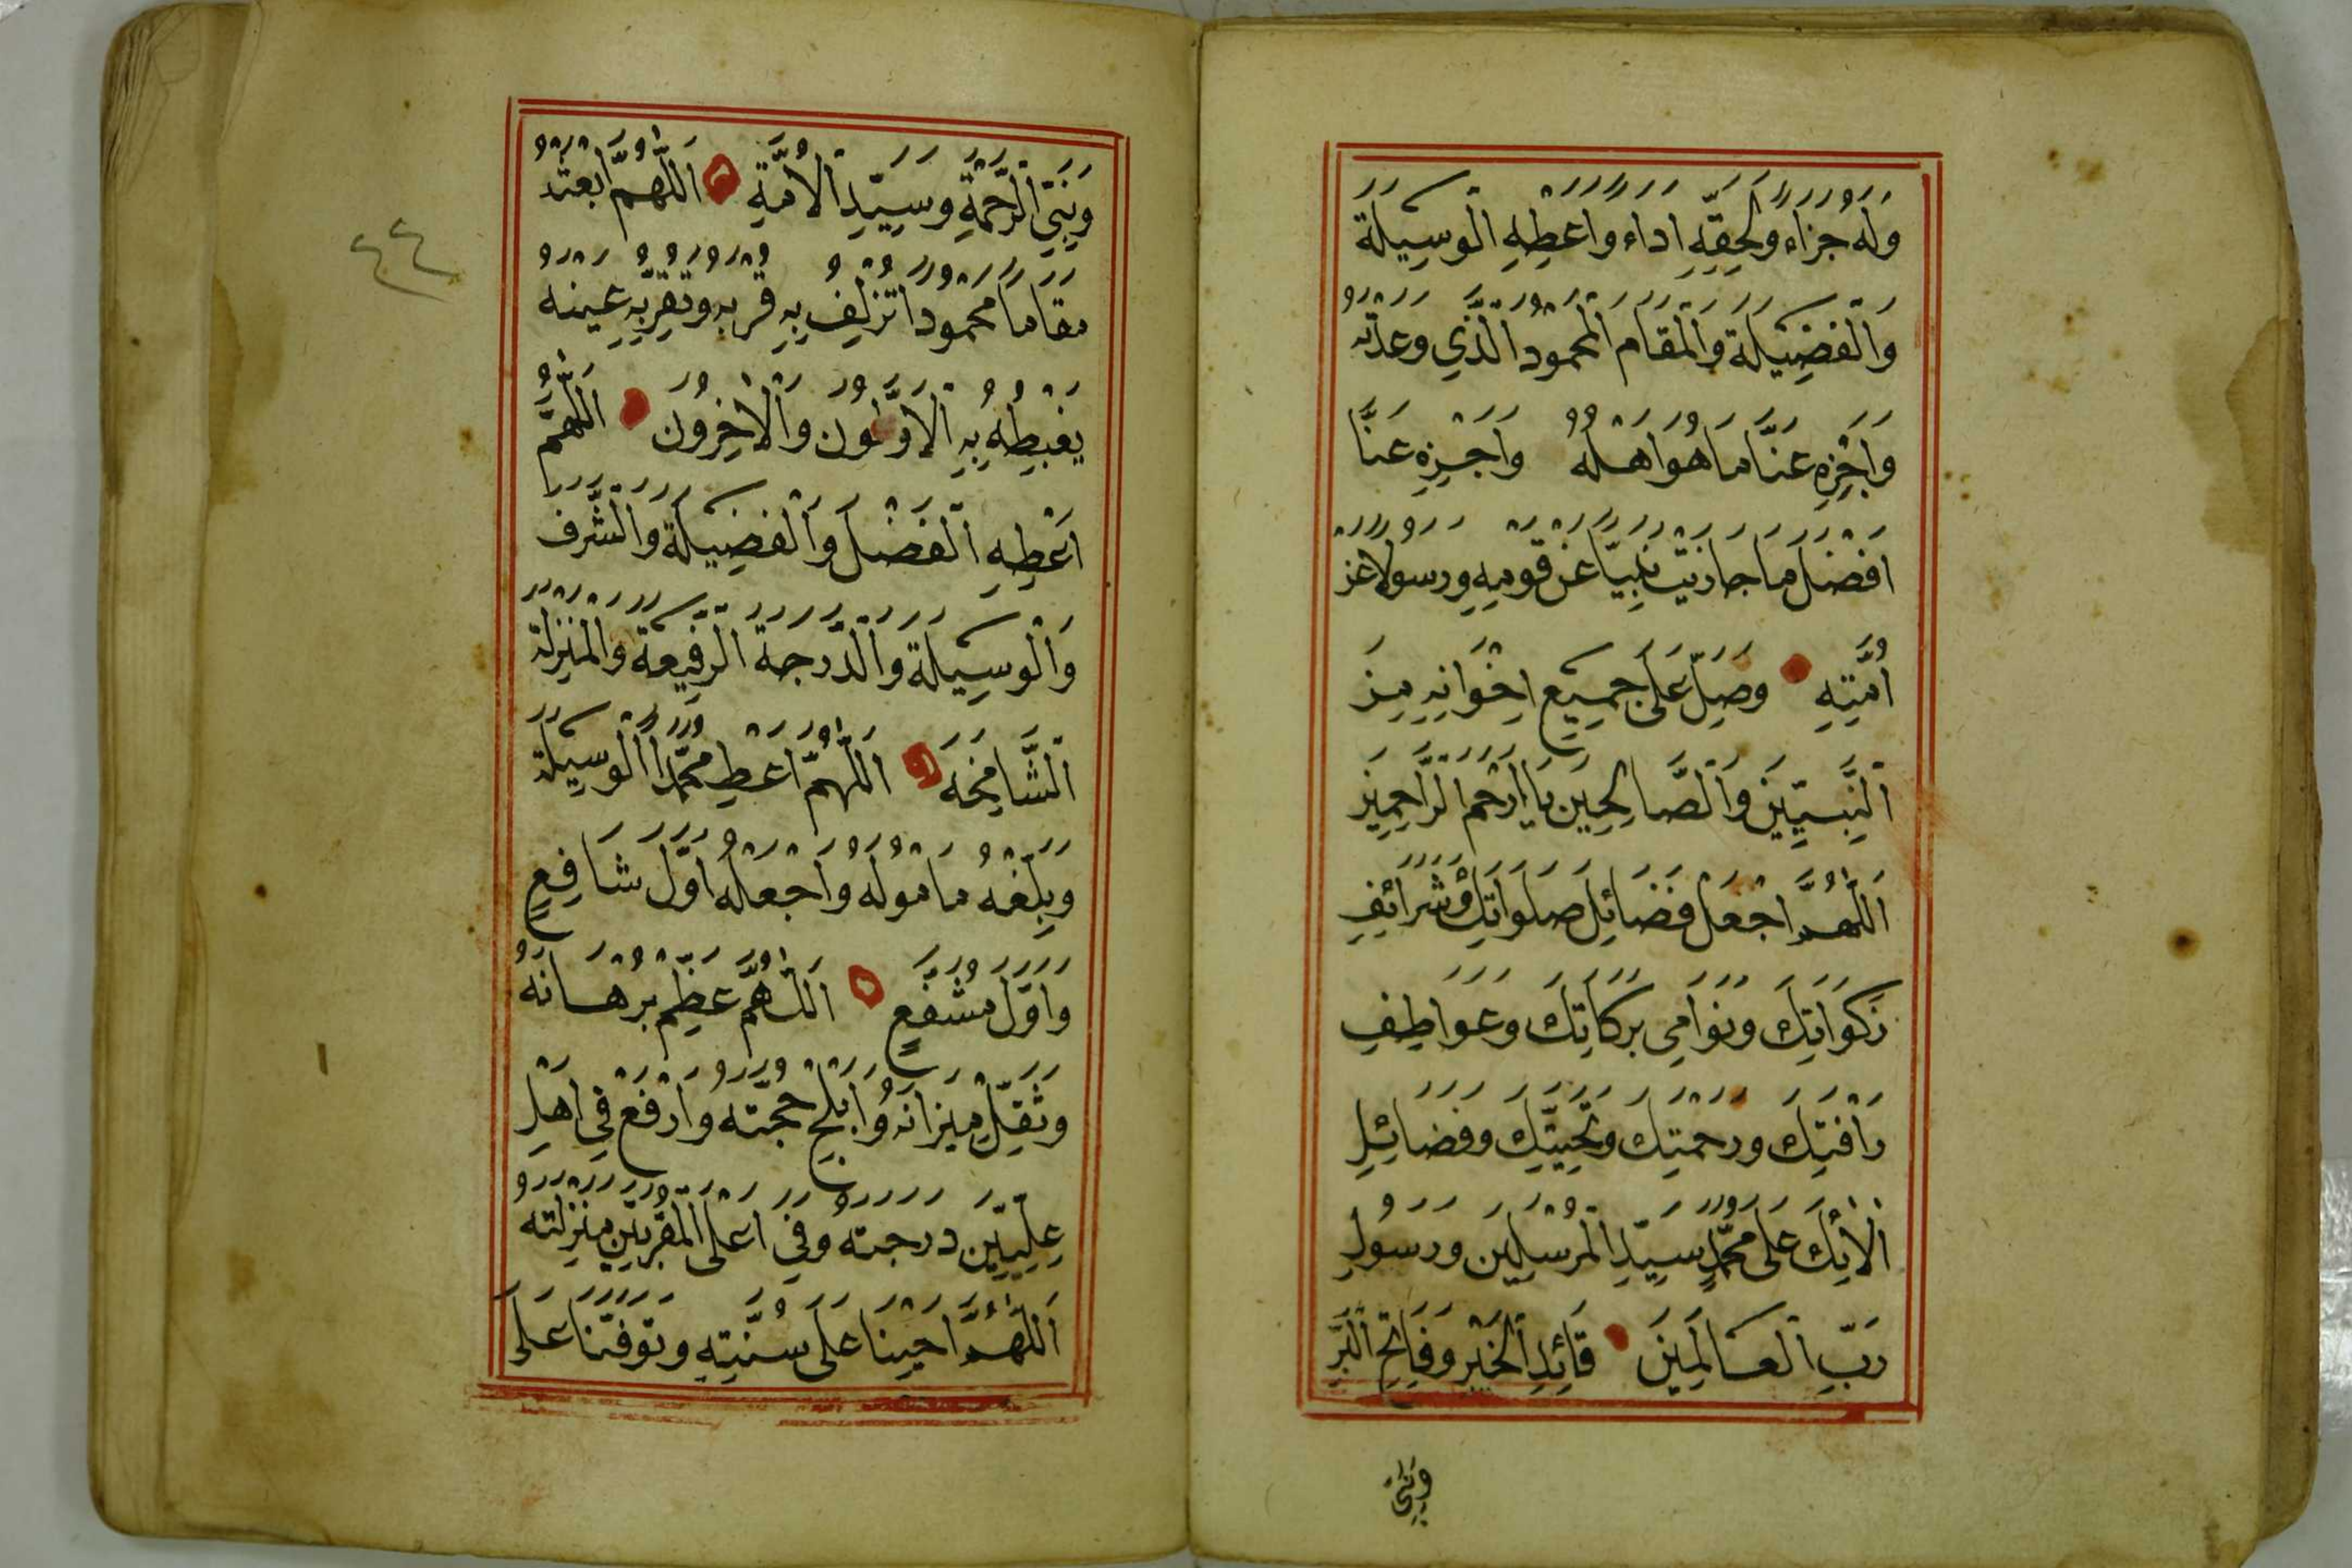 وَلَهُ جَزَاءً وَلِحَقِّهِ اَدَاءً وَاَعْطِهِ الْوَسِيلَةَ
وَالْفَضِيلَةَ وَالْمَقَامَ الْمَحْمُودَ الَّذِي وَعَدْتَهُ
وَاجْزِهِ عَنَّا مَا هُوَ اَهْلُهُ وَاجْزِهِ عَنَّا
اَفْضَلَ مَا جَازَيْتَ نَبِيًّا عَنْ قَوْمِهِ وَرَسُولًا عَنْ
اُمَّتِهِ وَصَلِّ عَلَى جَمِيعِ اِخْوَانِهِ مِنَ
النَّبِيِّينَ وَالصَّالِحِينَ يَا اَرْحَمَ الرَّاحِمِينَ
اَللّٰهُمَّ اجْعَلْ فَضَائِلَ صَلَوَاتِكَ وَشَرَائِفَ
زَكَوَاتِكَ وَنَوَامِيَ بَرَكَاتِكَ وَعَوَاطِفَ
رَاْفَتِكَ وَرَحْمَتِكَ وَتَحِيَّتِكَ وَفَضَائِلَ
اٰلَائِكَ عَلَى مُحَمَّدٍ سَيِّدِ الْمُرْسَلِينَ وَرَسُولِ
رَبِّ الْعَالَمِينَ قَائِدِ الْخَيْرِ وَفَاتِحِ الْبِرِّ
وَنَبِيِّ
وَنَبِيِّ الرَّحْمَةِ وَسَيِّدِ الْاُمَّةِ اَللّٰهُمَّ ابْعَثْهُ
مَقَامًا مَحْمُودًا تُزْلِفُ بِهِ قُرْبَهُ وَتُقِرُّ بِهِ عَيْنَهُ
يَغْبِطُهُ بِهِ الْاَوَّلُونَ وَالْاٰخِرُونَ اَللّٰهُمَّ
اَعْطِهِ الْفَضْلَ وَالْفَضِيلَةَ وَالشَّرَفَ
وَالْوَسِيلَةَ وَالدَّرَجَةَ الرَّفِيعَةَ وَالْمَنْزِلَةَ
الشَّامِخَةَ اَللّٰهُمَّ اَعْطِ مُحَمَّدًا الْوَسِيلَةَ
وَبَلِّغْهُ مَامُولَهُ وَاجْعَلْهُ اَوَّلَ شَافِعٍ
وَاَوَّلَ مُشَفَّعٍ اَللّٰهُمَّ عَظِّمْ بُرْهَانَهُ
وَثَقِّلْ مِيزَانَهُ وَاَبْلِجْ حُجَّتَهُ وَارْفَعْ فِي اَهْلِ
عِلِّيِّينَ دَرَجَتَهُ وَفِي اَعْلَى الْمُقَرَّبِينَ مَنْزِلَتَهُ
اَللّٰهُمَّ اَحْيِنَا عَلَى سُنَّتِهِ وَتَوَفَّنَا عَلَى
٤٤